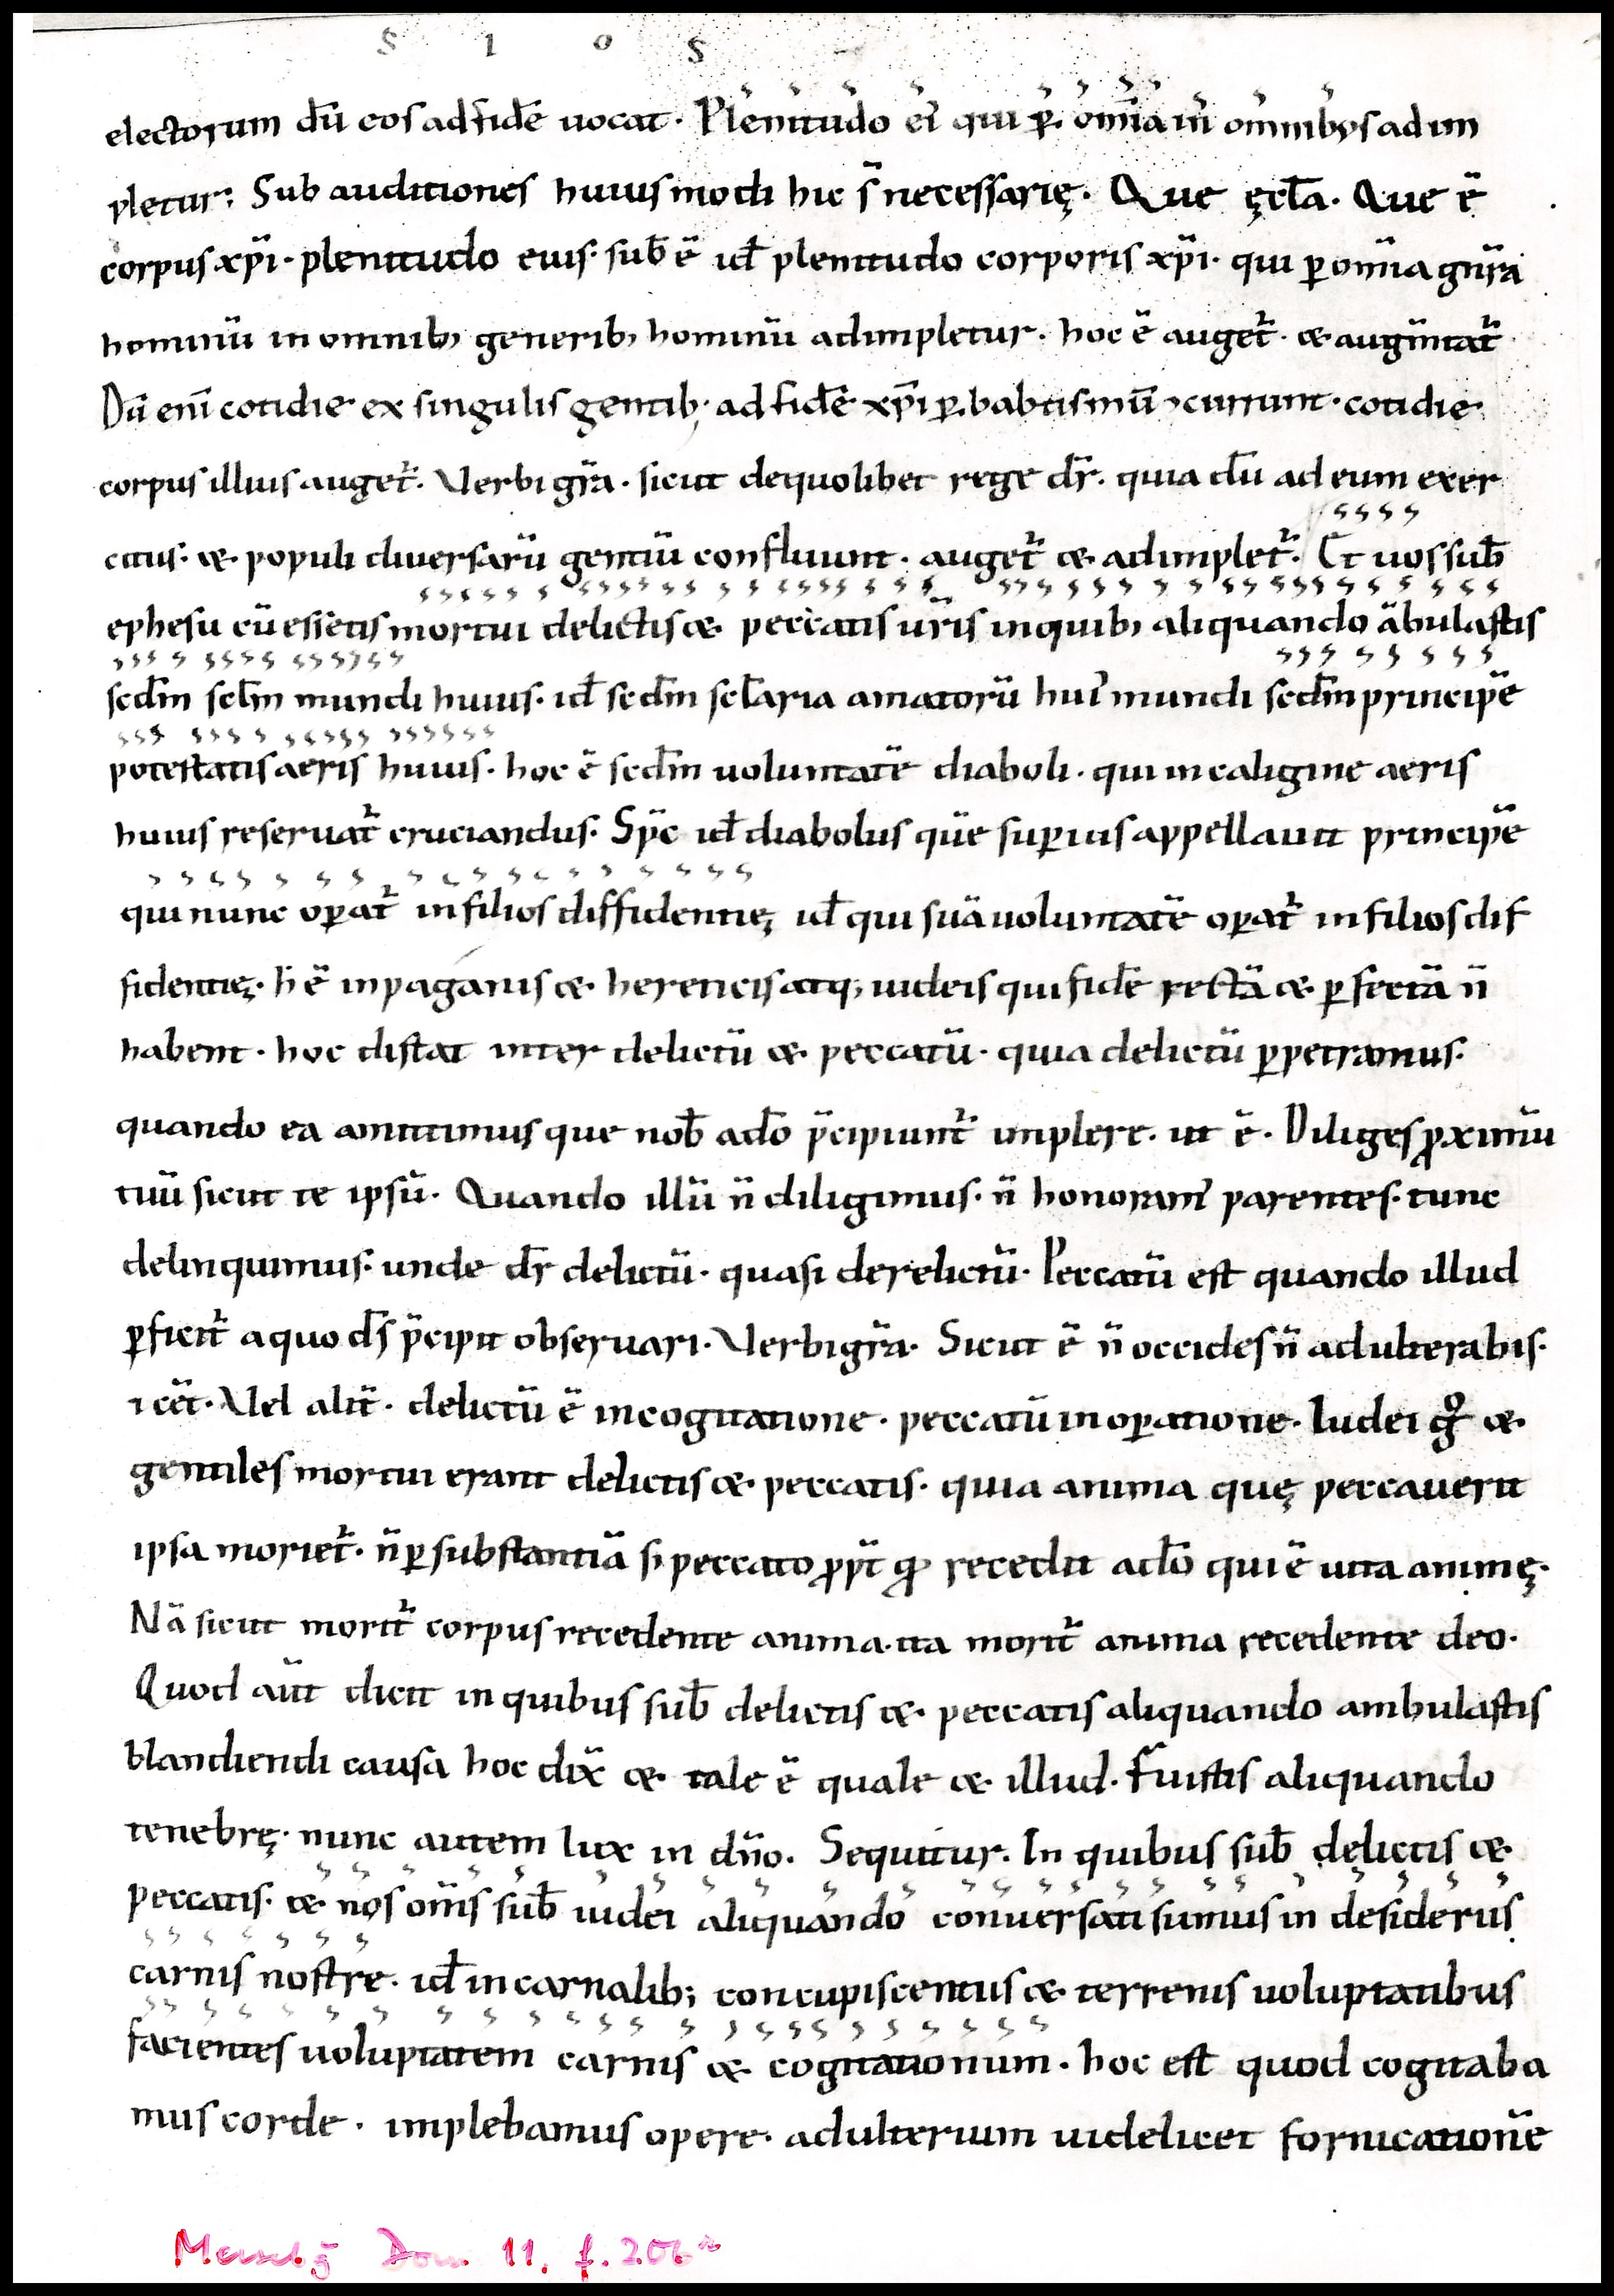 S I O S
electorum dū eos ad fidē uocat. Plenitudo ei᾽ qui p̲ om̄ia in omnibus adim
pletur; Sub auditiones huiusmodi hic s̄ necessarię. Que ęcƚa. Que ē
corpus xp̄i. plenitudo eius. sub̄ ē id̄ plenitudo corporis xp̄i. qui p̲ om̄ia gn̄ra
hominū in omnib; generib; hominū adimpletur. hoc ē augetᷣ. & augm̄tatᷣ
Dū eni᷑ cotidie ex singulis gentib; ad fidē xp̄i p̲ babtismū ꝯcurrunt. cotidie
corpus illius augetᷣ. Verbi gr̄a. sicut de quolibet rege dr̄. quia dū ad eum exer
citus. & populi diuersarū gentiū confluunt. augetᷣ & adimpletᷣ. Et uos sub̄
ephesu cū essetis mortui delictis & peccatis ur̄is in quib; aliquando ābulastis
sed̄m scƚm mundi huius. id̄ sed̄m scƚaria amatorū hui᾽ mundi sed̄m principē
potestatis aeris huius. hoc ē sed̄m uoluntatē diaboli. qui in caligine aeris
huius reseruatᷣ cruciandus. Sp̄c id̄ diabolus quē sup̲ius appellauit principē
qui nunc op̲atᷣ in filios diffidentię id̄ qui suā uoluntatē op̲atᷣ in filios dif
fidentię. h̄ ē in paganis & hereticis atq; iudeis qui fidē rectā & p̲fectā n̄
habent. hoc distat inter delictū & peccatū. quia delictū p̲petramus.
quando ea amittimus que nob̄ ad̄o p̄cipiuntᷣ implere. ut ē. Diliges ꝓximū
tuū sicut te ipsū. Quando illū n̄ diligimus. n̄ honoram᾽ parentes. tunc
delinquimus. unde dr̄ delictū. quasi derelictū. Peccatū est quando illud
p̲ficitᷣ a quo d̄s p̄cipit obseruari. Verbi gr̄a. Sicut ē n̄ occides n̄ adulterabis.
⁊ cēt. Vel alit̄. delictū ē in cogitatione. peccatū in op̲atione. Iudei gͦ &
gentiles mortui erant delictis & peccatis. quia anima quę peccauerit
ipsa morietᷣ. n̄ p̲ substantiā s; peccato ꝓpt̄ ꝙ recedit ad̄o qui ē uita animę.
Nā sicut moritᷣ corpus recedente anima. ita moritᷣ anima recedente deo.
Quod aūt dicit in quibus sub̄ delictis & peccatis aliquando ambulastis
blandiendi causa hoc dix̄ & tale ē quale & illud. Fuistis aliquando
tenebrę. nunc autem lux in dn̄o. Sequitur. In quibus sub̄ delictis &
peccatis. & nos om̄s sub̄ iudei aliquando conuersati sumus in desideriis
carnis nostre. id̄ in carnalib; concupiscentiis & terrenis uoluptatibus
facientes uoluptatem carnis & cogitationum. hoc est quod cogitaba
mus corde. implebamus opere. adulterium uidelicet fornicationē
Dom 11. f. 206